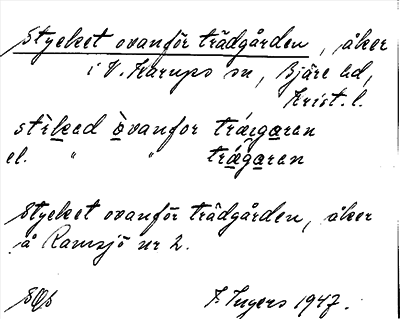 Stycket ovanför trädgården, åker
i V. Karups sn, Bjäre hd,
Krist. l.
stìked òvanfor träigaren
el. " " trägaren
Stycket ovanför trädgården, åker
å Ramsjö nr 2.
F. Ingers 1947.